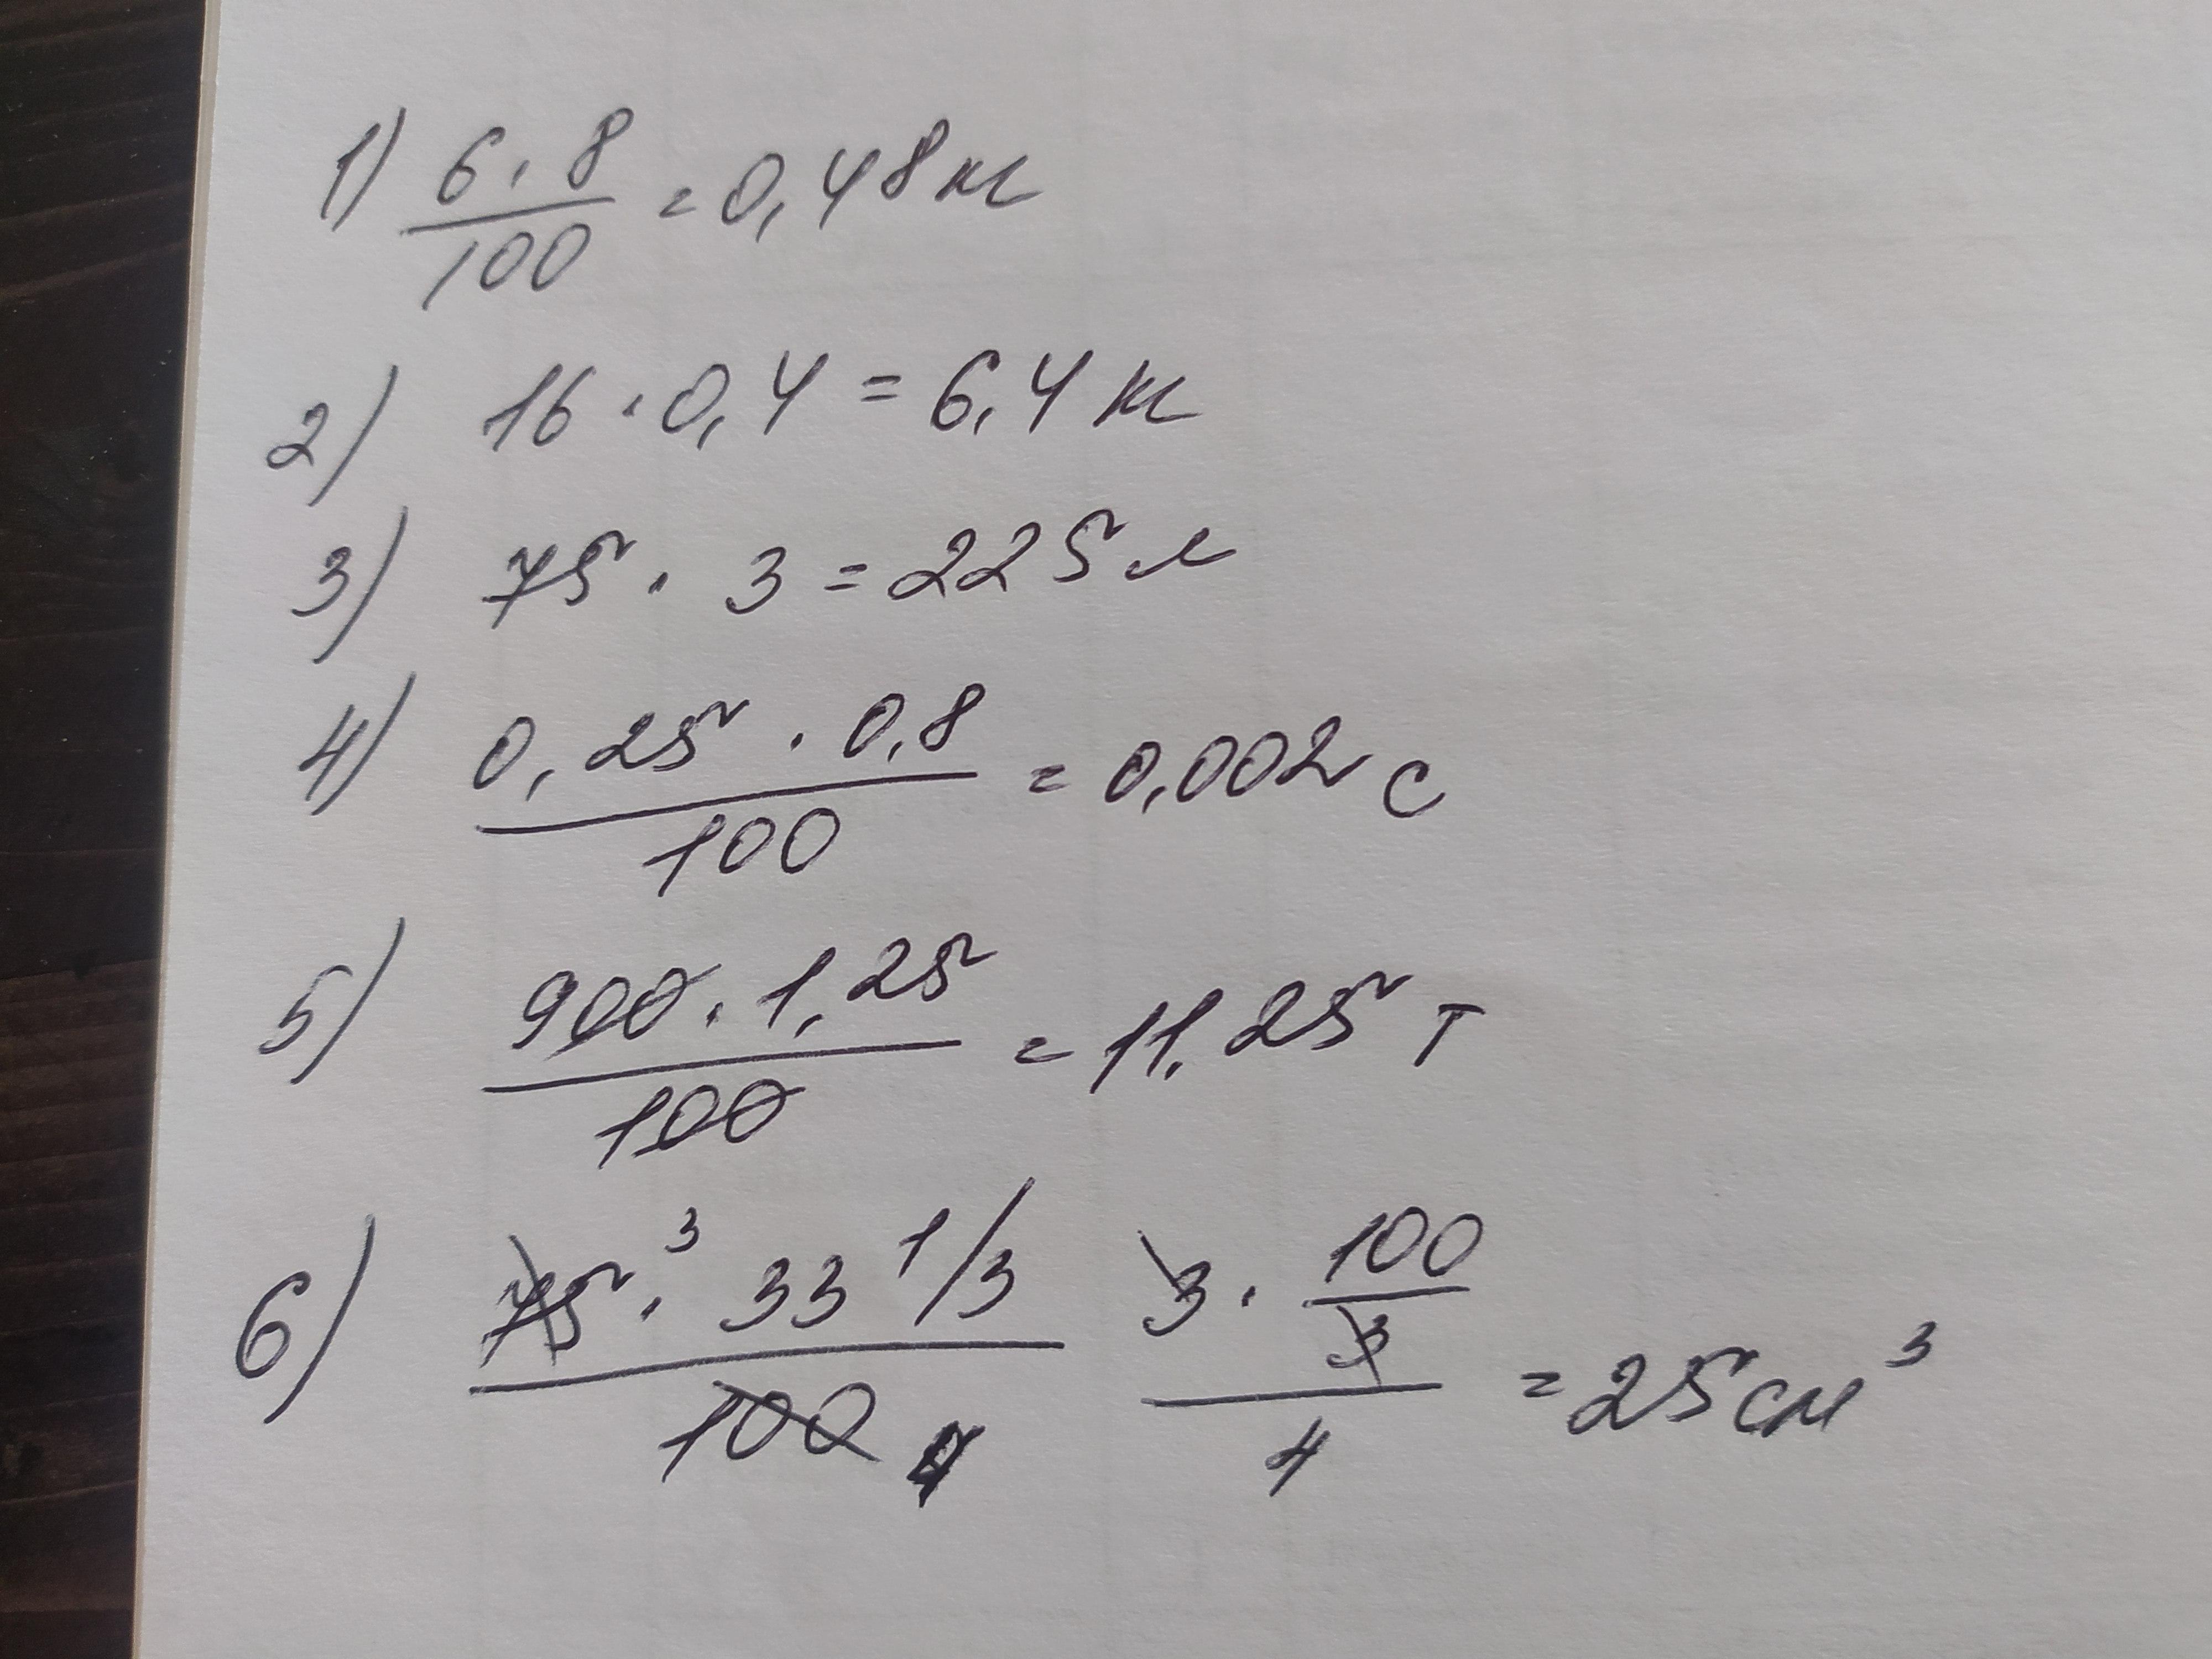 1) 6 · 8 / 100 = 0,48 м
2) 16 · 0,4 = 6,4 м
3) 75 · 3 = 225 л
4) 0,25 · 0,8 / 100 = 0,002 с
5) 900 · 1,25 / 100 = 11,25 т
6) 75 3 · 33 1/3 / 100 4 3 · 100/3 / 4 = 25 см³